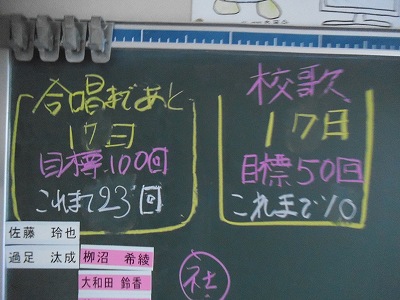 合唱まであと
17日
目標100回
これまで23回
校歌
17日
目標50回
これまで10
佐藤 玲也
過足 汰成
栁沼 希綾
大和田 鈴香
社